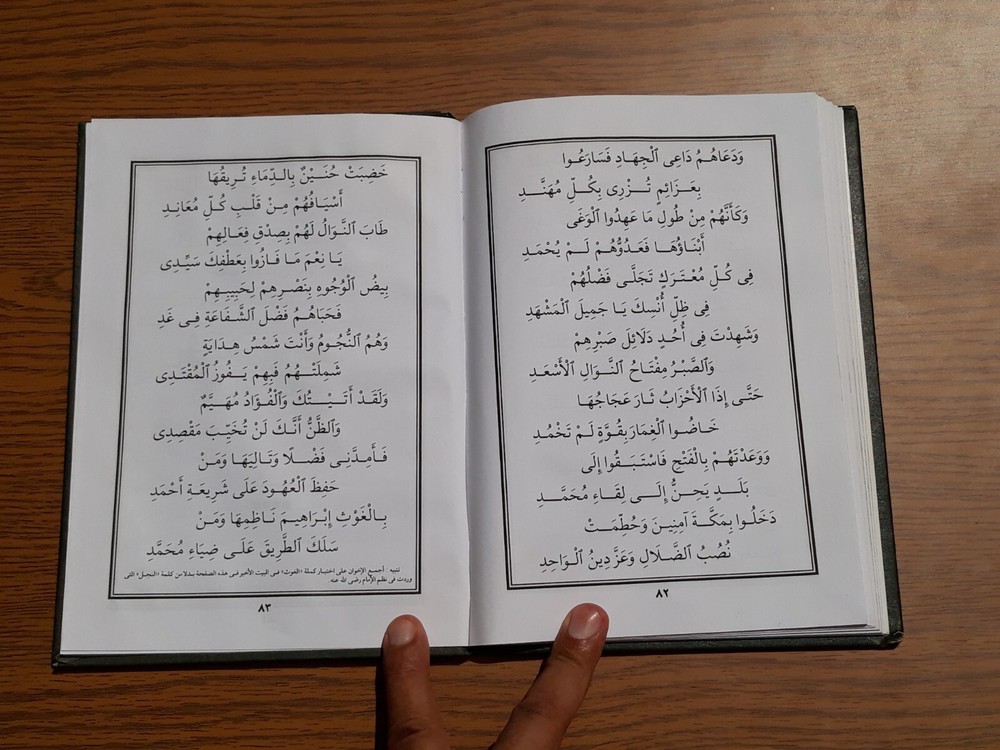 وَدَعَاهُمُ دَاعِى ٱلْجِهَادِ فَسَارَعُوا
بِعَزَائِمٍ تُزْرِى بِكُلِّ مُهَنَّدِ
وَكَأَنَّهُمْ مِنْ طُولِ مَا عَهِدُوا ٱلْوَغَى
أَبْنَاؤُهَا فَعَدُوُّهُمْ لَمْ يُحْمَدِ
فِى كُلِّ مُعْتَرَكٍ تَجَلَّى فَضْلُهُمْ
فِى ظِلِّ أُنْسِكَ يَا جَمِيلَ ٱلْمَشْهَدِ
وَشَهِدْتَ فِى أُحُدٍ دَلَائِلَ صَبْرِهِمْ
وَٱلصَّبْرُ مِفْتَاحُ ٱلنَّوَالِ ٱلْأَسْعَدِ
حَتَّى إِذَا ٱلْأَحْزَابُ ثَارَ عَجَاجُهَا
خَاضُوا ٱلْغِمَارَ بِقُوَّةٍ لَمْ تَخْمُدِ
وَوَعَدْتَهُمْ بِالْفَتْحِ فَاسْتَبَقُوا إِلَى
بَلَدٍ يَحِنُّ إِلَى لِقَاءِ مُحَمَّدِ
دَخَلُوا بِمَكَّةَ آمِنِينَ وَحُطِّمَتْ
نُصُبُ ٱلضَّلَالِ وَعَزَّ دِينُ ٱلْوَاحِدِ
٨٢
خَضِبَتْ حُنَيْنٌ بِالدِّمَاءِ تُرِيقُهَا
أَسْيَافُهُمْ مِنْ قَلْبِ كُلِّ مُعَانِدِ
طَابَ ٱلنَّوَالُ لَهُمْ بِصِدْقِ فِعَالِهِمْ
يَا نِعْمَ مَا فَازُوا بِعَطْفِكَ سَيِّدِى
بِيضُ ٱلْوُجُوهِ بِنَصْرِهِمْ لِحَبِيبِهِمْ
فَحَبَاهُمُ فَضْلَ ٱلشَّفَاعَةِ فِى غَدِ
وَهُمُ ٱلنُّجُومُ وَأَنْتَ شَمْسُ هِدَايَةٍ
شَمِلَتْهُمُ فَبِهِمْ يَفُوزُ ٱلْمُقْتَدِى
وَلَقَدْ أَتَيْتُكَ وَٱلْفُؤَادُ مُهَيَّمٌ
وَٱلظَّنُّ أَنَّكَ لَنْ تُخَيِّبَ مَقْصِدِى
فَأَمِدَّنِى فَضْلًا وَتَالِيَهَا وَمَنْ
حَفِظَ ٱلْعُهُودَ عَلَى شَرِيعَةِ أَحْمَدِ
بِالْغَوْثِ إِبْرَاهِيمَ نَاظِمِهَا وَمَنْ
سَلَكَ ٱلطَّرِيقَ عَلَى ضِيَاءِ مُحَمَّدِ
تنبيه أجمع الإخوان على اختيار كملة «الغوث» فى البيت الأخير فى هذه الصفحة بدلا من كلمة «النجل» التى
وردت فى نظم الإمام رضى الله عنه
٨٣